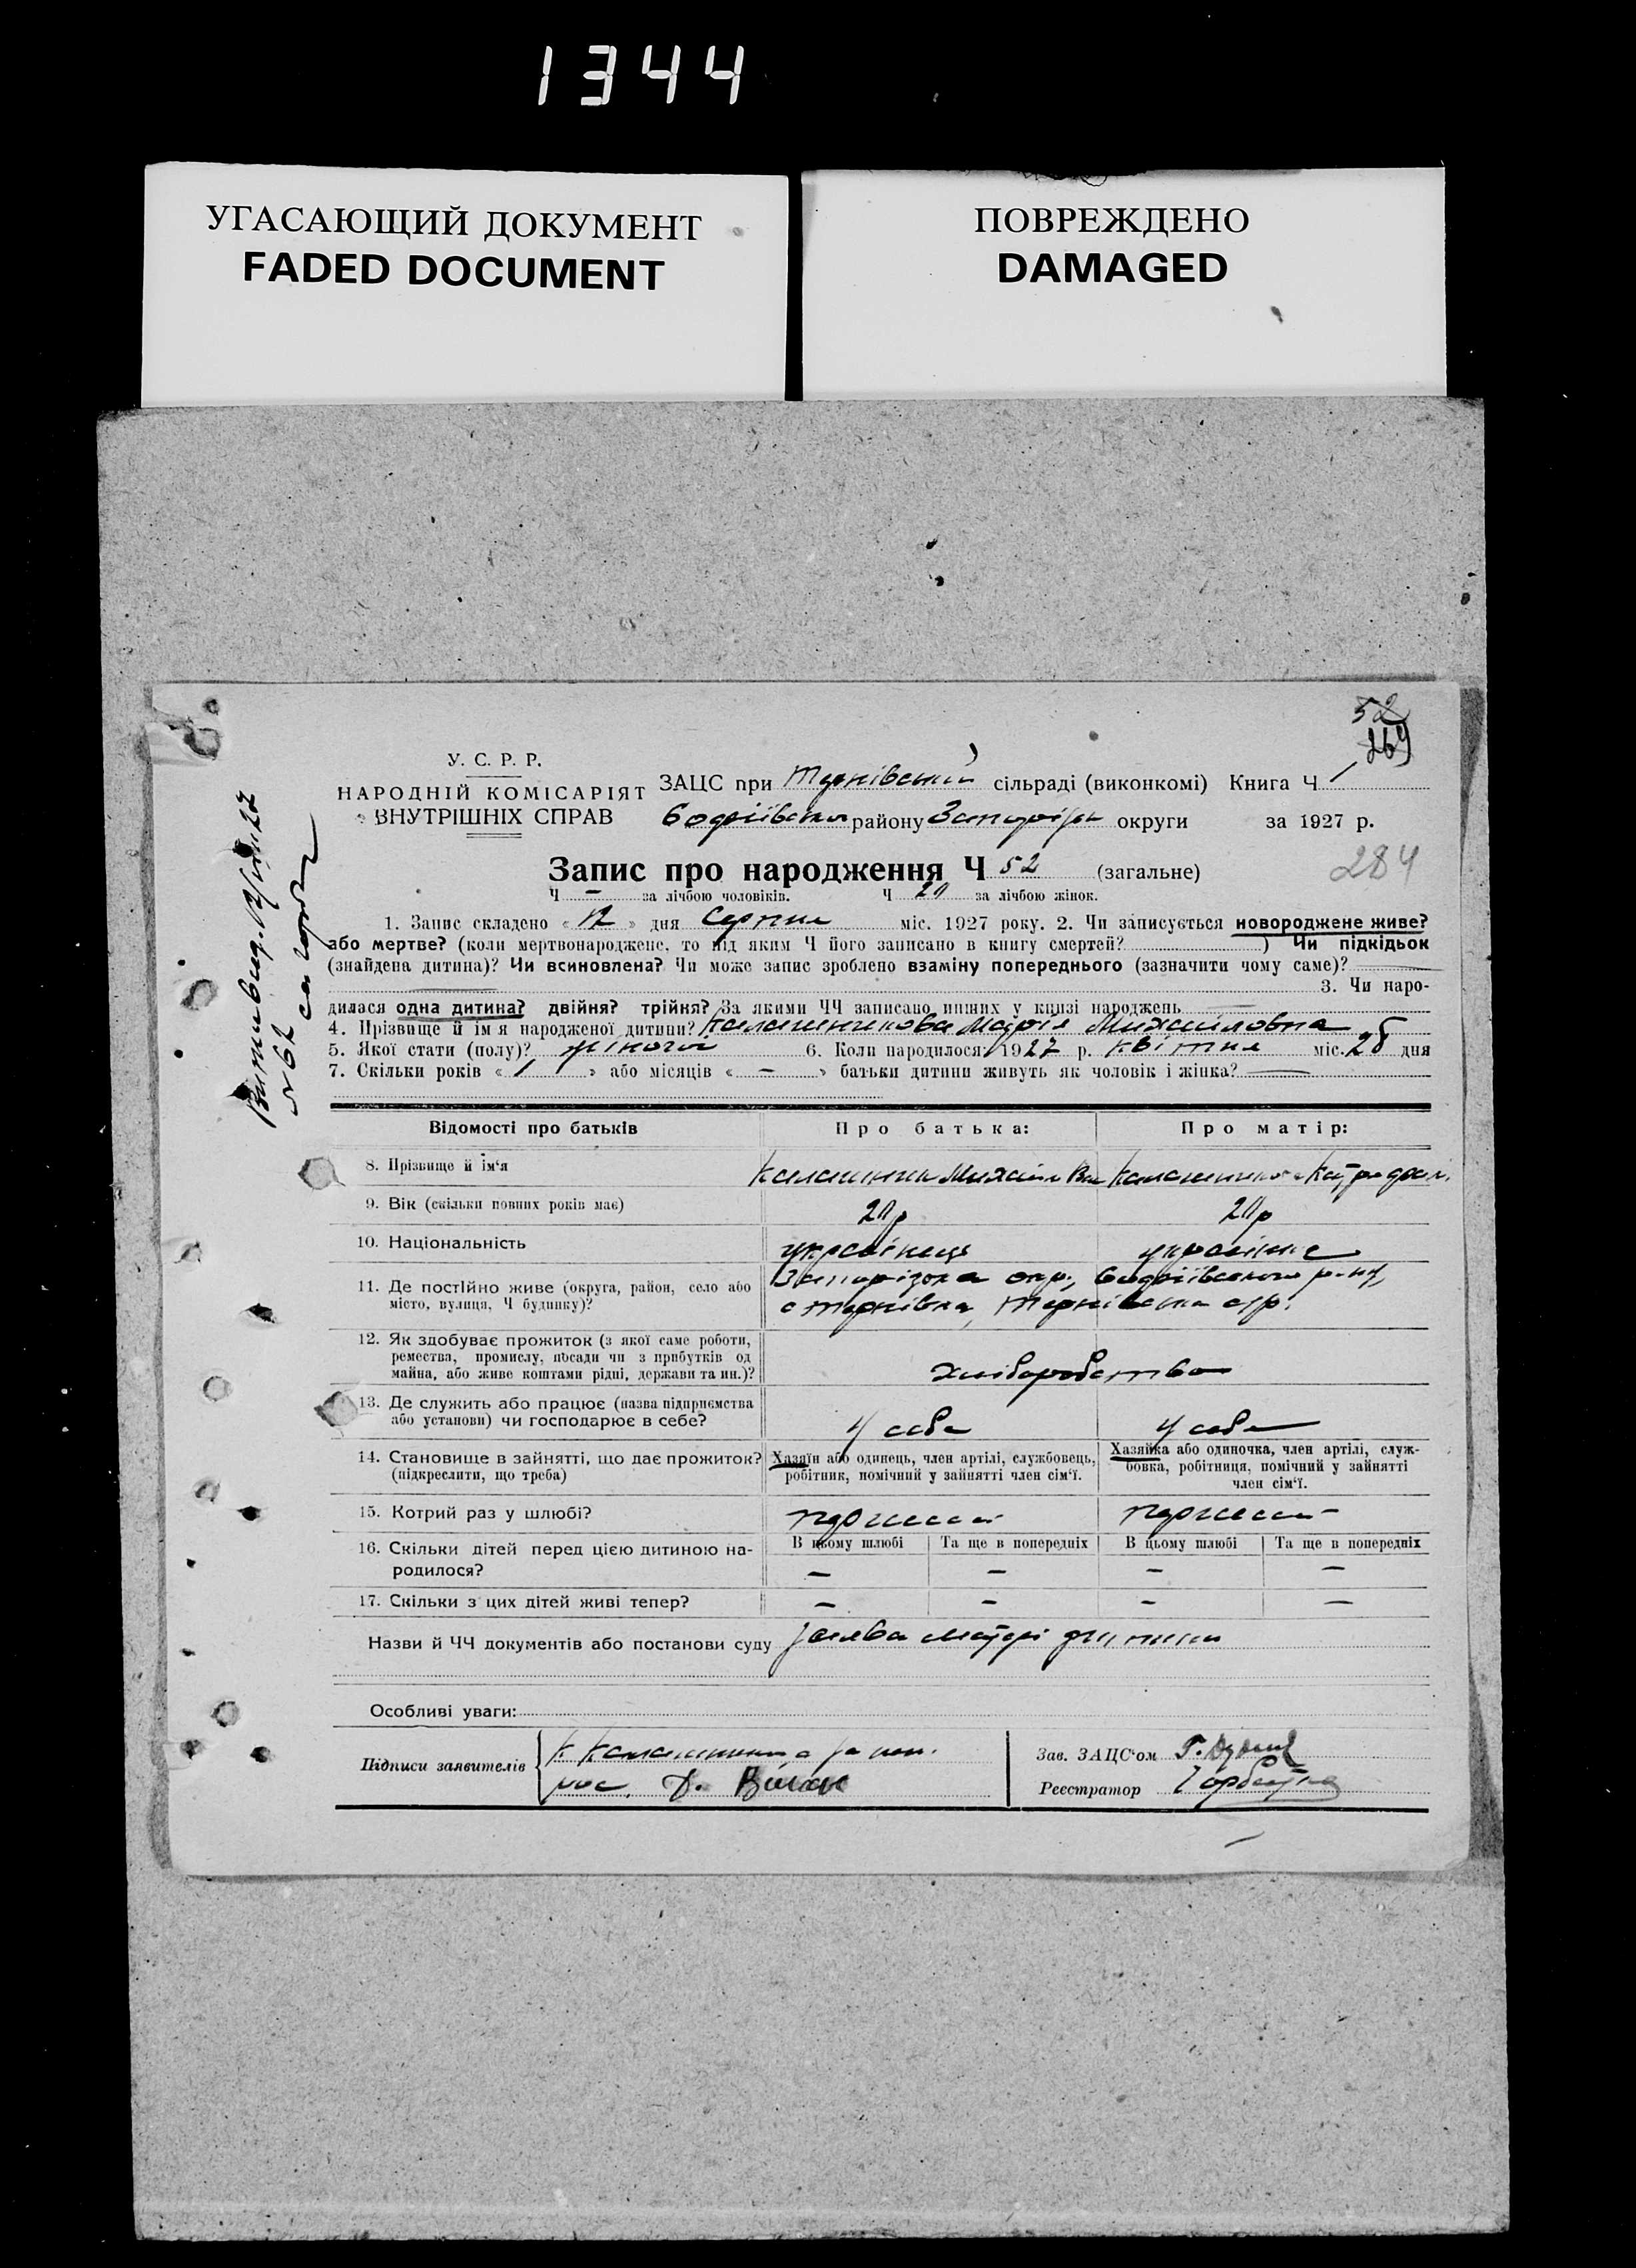 1344
УГАСАЮЩИЙ ДОКУМЕНТ
FADED DOCUMENT
ПОВРЕЖДЕНО
DAMAGED
52
269
У. С. Р. Р.
НАРОДНІЙ КОМІСАРІЯТ
ВНУТРІШНІХ СПРАВ
ЗАЦС при Тернівській сільраді (виконкомі) Книга Ч 1
району округи за 1927 р.
Запис про народження Ч 52 (загальне)
284
Ч — за лічбою чоловіків. Ч за лічбою жінок.
1. Запис складено « 12 » дня Серпня міс. 1927 року. 2. Чи записується новороджене живе?
або мертве? (коли мертвонароджене, то під яким Ч його записано в книгу смертей? ) Чи підкідьок
(знайдена дитина)? Чи всиновлена? Чи може запис зроблено взаміну попереднього (зазначити чому саме)? —
— 3. Чи наро-
дилася одна дитина? двійня? трійня? За якими ЧЧ записано инших у книзі народжень —
4. Прізвище й ім'я народженої дитини? Калашникова Марія Михайловна
5. Якої стати (полу)? жіночої 6. Коли народилося: 1927 р. квітня міс. 28 дня
7. Скільки років « 1 » або місяців « — » батьки дитини живуть як чоловік і жінка? —
Відомості про батьків
Про батька:
Про матір:
8. Прізвище й ім'я
Калашник Михайло
9. Вік (скільки повних років має)
10. Національність
українець
українка
11. Де постійно живе (округа, район, село або
місто, вулиця, Ч будинку)?
Запорізька окр.,
с Тернівка, Тернівська с/р.
12. Як здобуває прожиток (з якої саме роботи,
ремества, промислу, посади чи з прибутків од
майна, або живе коштами рідні, держави та ин.)?
Хліборобство
13. Де служить або працює (назва підприємства
або установи) чи господарює в себе?
У себе
У себе
14. Становище в зайнятті, що дає прожиток?
(підкреслити, що треба)
Хазяїн або одинець, член артілі, службовець,
робітник, помічний у зайнятті член сім'ї.
Хазяйка або одиночка, член артілі, служ-
бовка, робітниця, помічний у зайнятті
член сім'ї.
15. Котрий раз у шлюбі?
16. Скільки дітей перед цією дитиною на-
родилося?
В цьому шлюбі
Та ще в попередніх
В цьому шлюбі
Та ще в попередніх
— — — —
17. Скільки з цих дітей живі тепер?
— — — —
Назви й ЧЧ документів або постанови суду Заява матері дитини
Особливі уваги:
Підписи заявителів
Зав. ЗАЦС'ом
Реєстратор